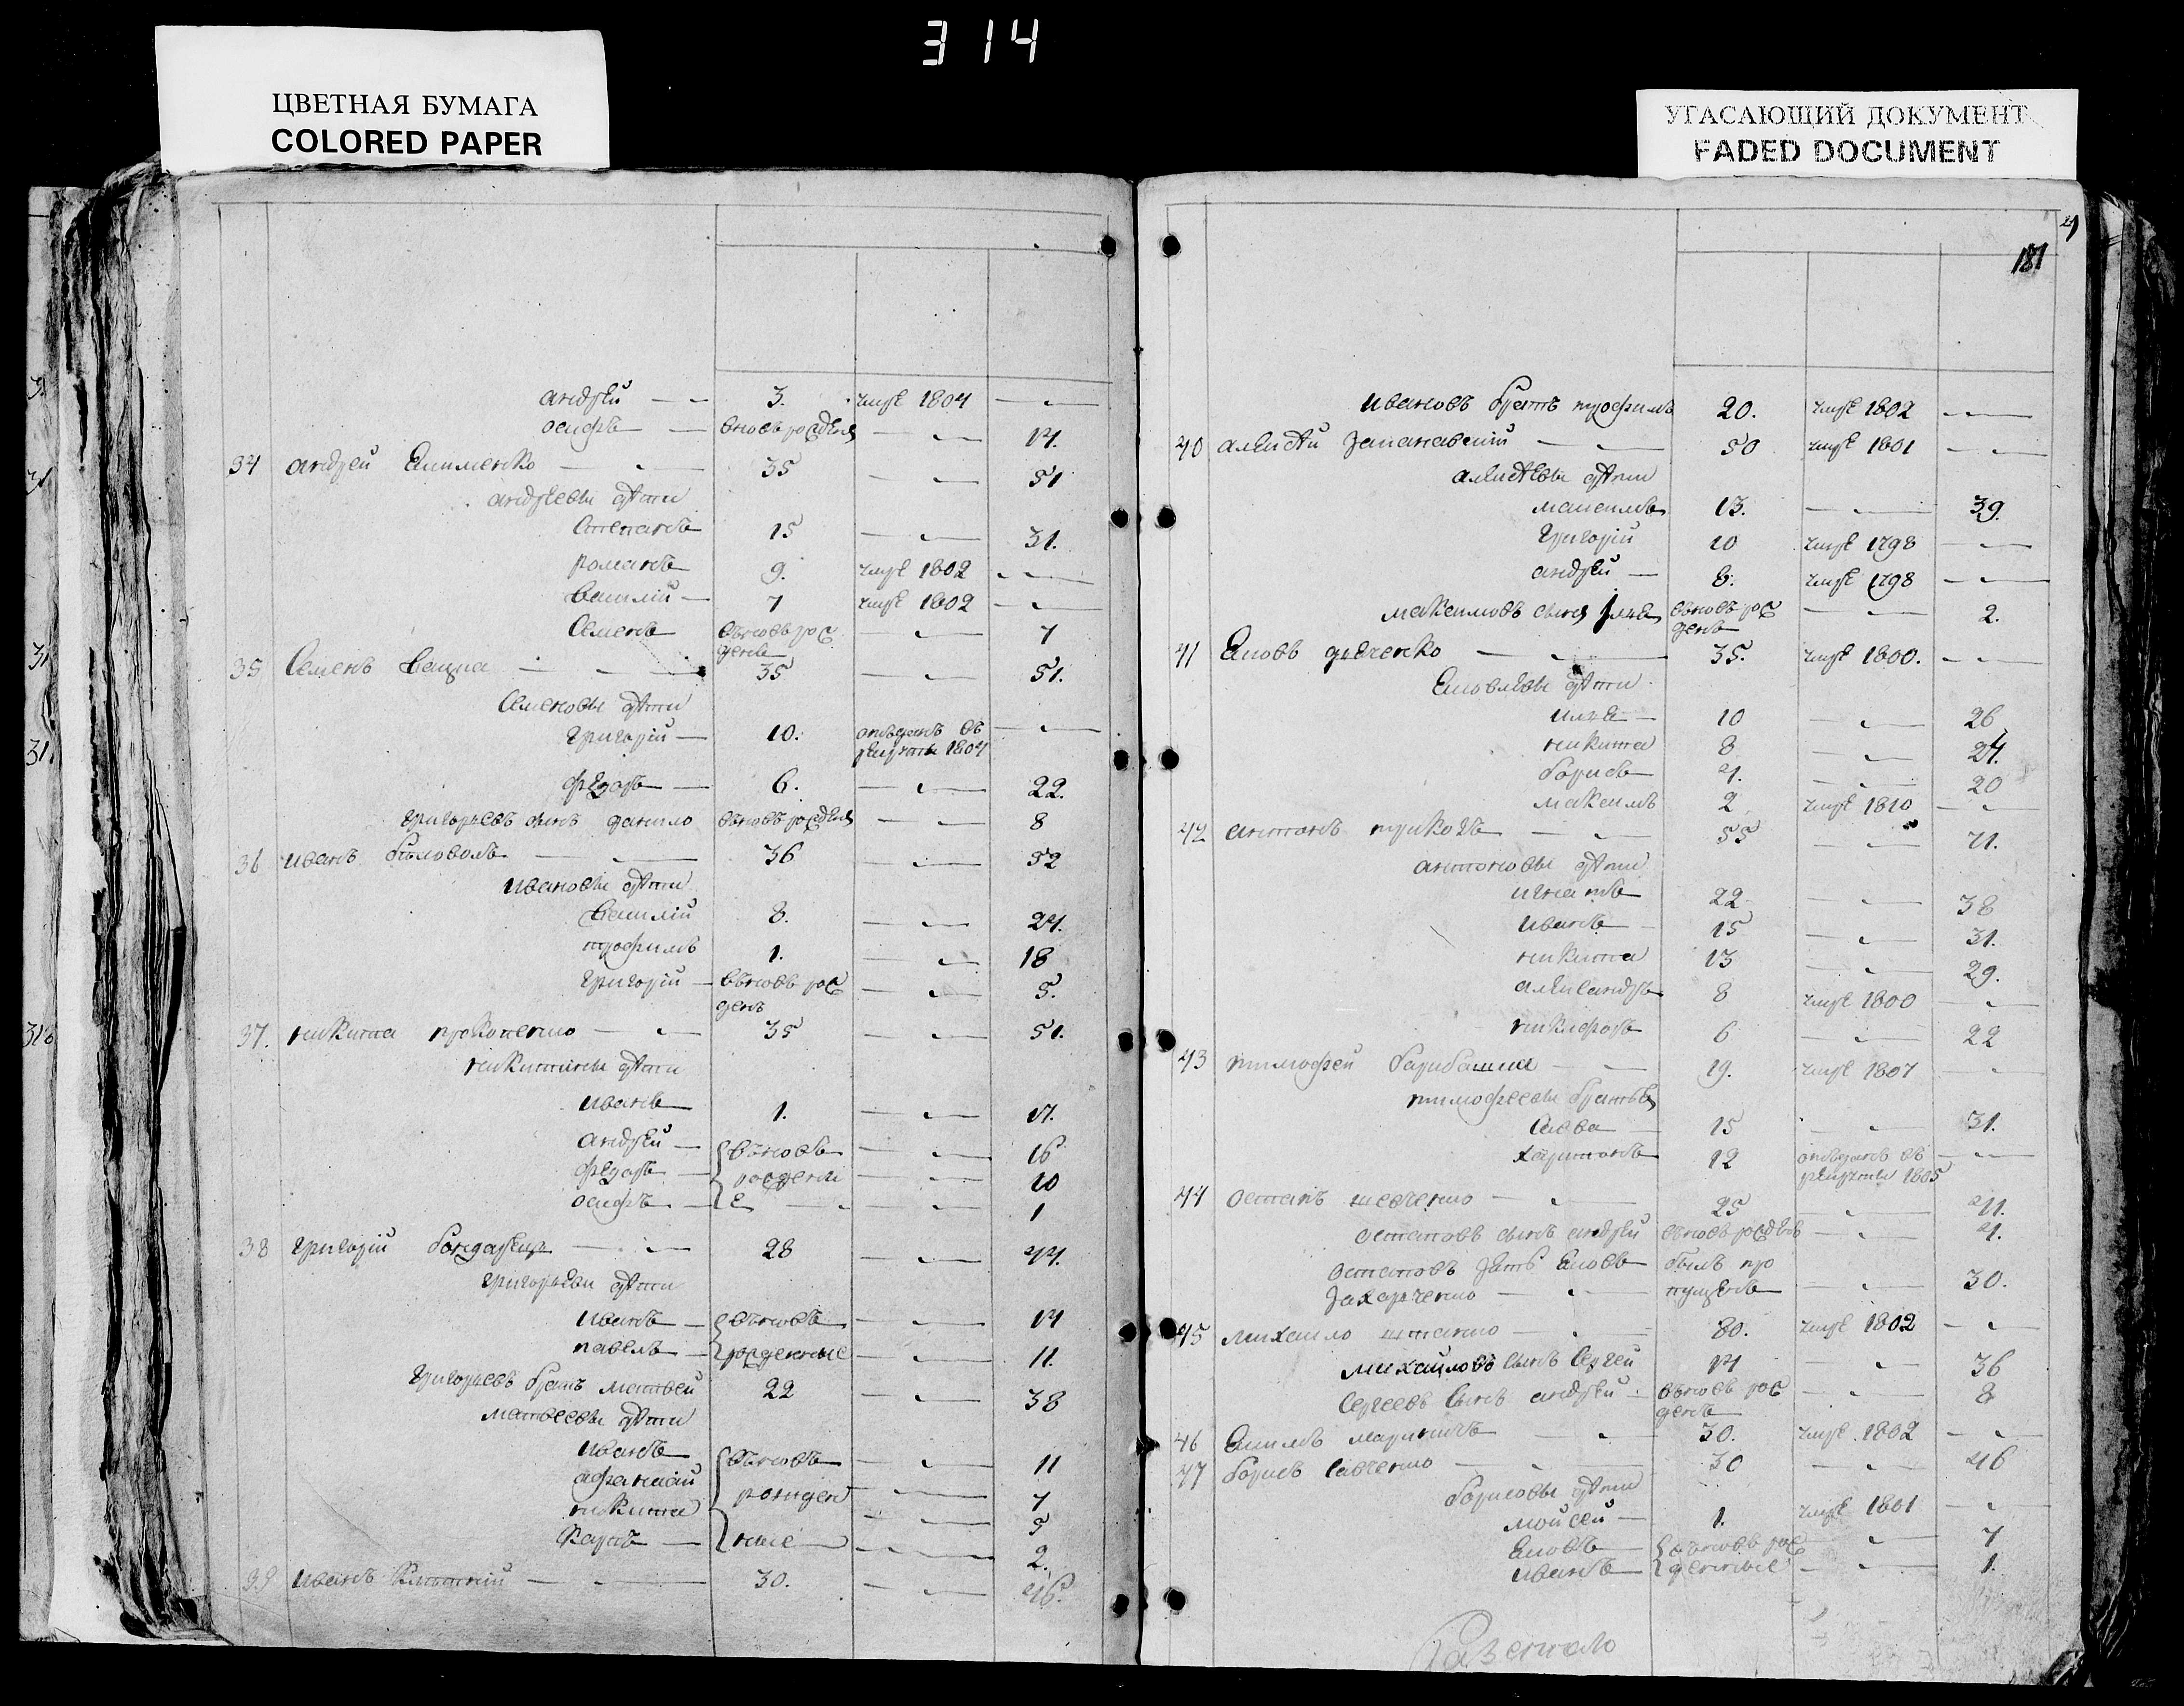 314
ЦВЕТНАЯ БУМАГА
COLORED PAPER
УГАСАЮЩИЙ ДОКУМЕНТ
FADED DOCUMENT
андрей 3. умре 1804
осифъ вновь рожденъ 14.
34 андрей Клименко 35 51
андреевы дѣти
Степанъ 15 31.
романъ 9. умре 1802
василій 7 умре 1802
Семенъ вновь рож 7
денъ
35 Семенъ 35 51.
Семеновы дѣти
григорій 10. отданъ въ
рекруты 1804
федоръ 6. 22.
григорьевъ сынъ данило вновь рожденъ 8
36 иванъ біловолъ 36 52
ивановы дѣти
василій 8. 24.
трофимъ 1. 18
григорій вновь рож 5.
денъ
37. никита прокопенко 35 51.
никитины дѣти
иванъ 1. 17.
андрей вновь 16
федоръ рожденны 10
осифъ е 1
38 григорій бондарь 28 44.
григорьевы дѣти
иванъ вновь 14
павелъ рожденные 11.
григорьевъ братъ матвей 22 38
матвеевы дѣти
иванъ вновь 11
афанасій рожден 7
никита 5
карпъ ные 2.
39 иванъ 30. 46.
4
181
ивановъ братъ трофимъ 20. умре 1802
40 алексѣй 50 умре 1801
алексѣевы дѣти
максимъ 13. 39.
григорій 10 умре 1798
андрей 6. умре 1798
максимовъ сынъ илья вновь рож 2.
денъ
41 Яковъ дяченко 35. умре 1800.
Яковлевы дѣти
илья 10 26
никита 8 24.
борисъ 4. 20
максимъ 2 умре 1810
42 антонъ 55 71.
антоновы дѣти
игнатъ 22 38
иванъ 15 31.
никита 13 29.
александръ 8 умре 1800
никифоръ 6 22
43 тимофей барабаша 19. умре 1807
тимофеевы братья
Савва 15 31.
харитонъ 12 отданъ въ
рекруты 1805
44 остапъ шевченко 25 41.
остаповъ сынъ андрей вновь рожденъ 4.
остаповъ зять Яковъ былъ про
захарченко пущенъ 30.
45 михайло 80. умре 1802
михайловъ сынъ Сергей 14 36
Сергеевъ сынъ андрей вновь рож 8
денъ
46 30. умре 1802
47 борисъ Савченко 30 46
борисовы дѣти
мойсей 1. умре 1801
Яковъ вновь рож 7
иванъ денные 1.